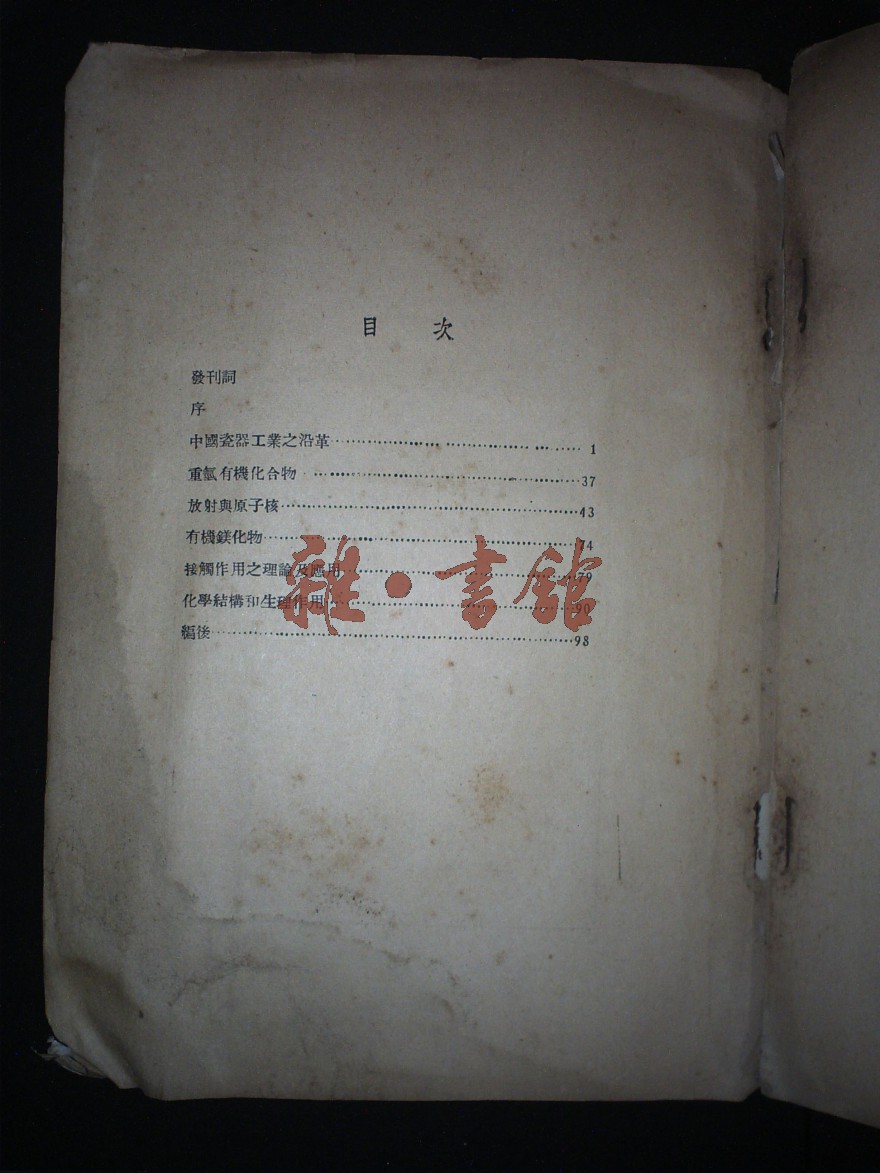 目 次
發刊詞
序
中國瓷器工業之沿革 1
重氫有機化合物 37
放射與原子核 43
有機鎂化物 74
接觸作用之理論及應用 79
化學結構和生理作用 90
編後 98
雜·書館